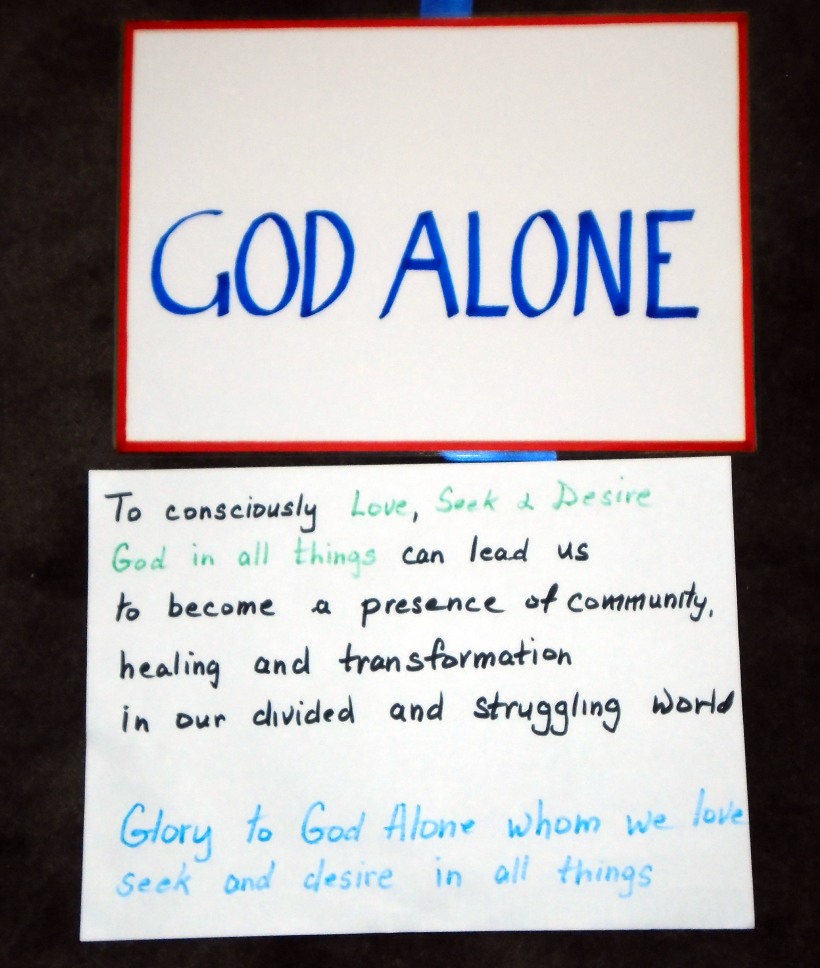 GOD ALONE
To consciously Love, Seek & Desire
God in all things can lead us
to become a presence of community,
healing and transformation
in our divided and struggling world
Glory to God Alone whom we love
seek and desire in all things